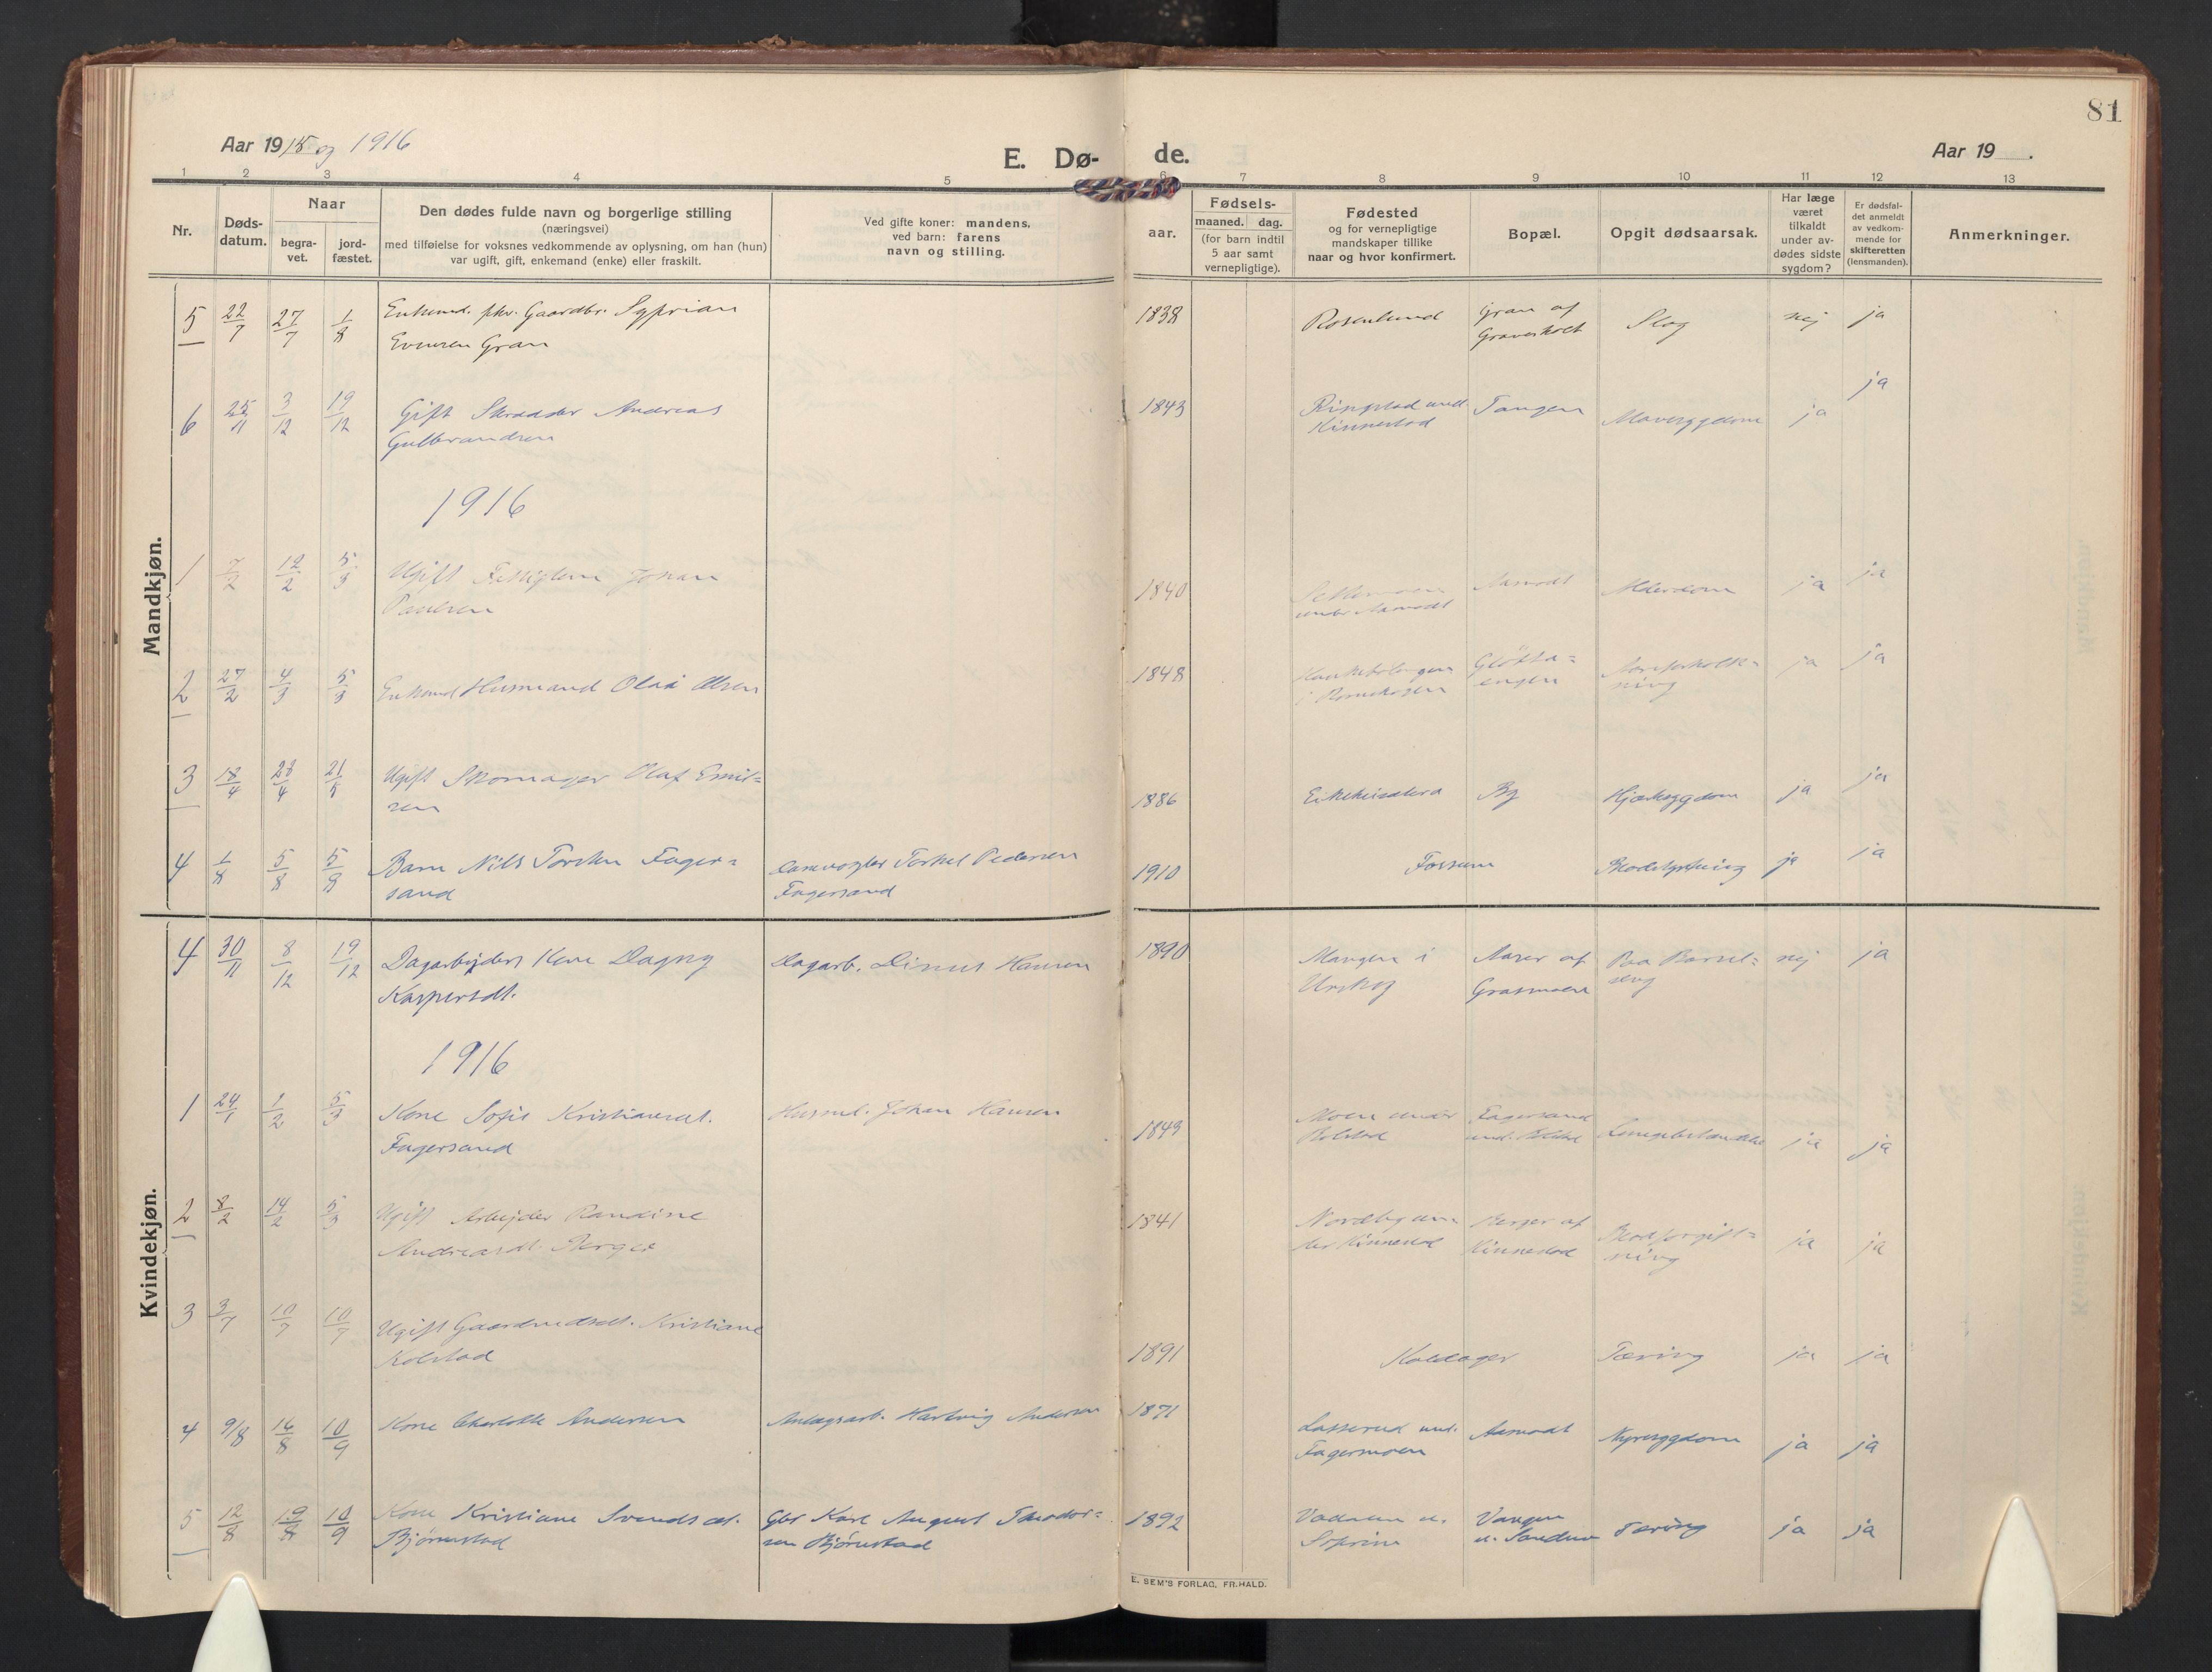 81
Aar 1915 og 1916
E. Dø- de.
Aar 19
1 2 3 4 5 6 7 8 9 10 11 12 13
Nr.
Døds-
datum.
Naar
begra-
vet.
jord-
fæstet.
Den dødes fulde navn og borgerlige stilling
(næringsvei)
med tilføielse for voksnes vedkommende av oplysning, om han (hun)
var ugift, gift, enkemand (enke) eller fraskilt.
Ved gifte koner: mandens,
ved barn: farens
navn og stilling.
Fødsels-
aar. maaned. dag.
(for barn indtil
5 aar samt
vernepligtige).
Fødested
og for vernepligtige
mandskaper tillike
naar og hvor konfirmert.
Bopæl.
Opgit dødsaarsak.
Har læge
været
tilkaldt
under av-
dødes sidste
sygdom?
Er dødsfal-
det anmeldt
av vedkom-
mende for
skifteretten
(lensmanden).
Anmerkninger.
Mandkjøn.
5 22/7 27/7 1/8 Enkemd. fhv. Gaardbr. Syprian 1838 Rosenlund Gran af Slag nej ja
Evensen Gran Graverholt
6 25/11 3/12 19/12 Gift Skrædder Andreas 1843 Ringstad und. Tangen Mavesygdom ja ja
Gulbrandsen Kinnestad
1916
1 7/2 12/2 5/3 Ugift Johan 1840 Aamodt Alderdom ja ja
Paulsen under Aamodt
2 27/2 4/3 5/3 Enkemd Husmand Olai Olsen 1848 ja ja
3 18/4 28/4 21/5 Ugift Skomager Olaf Emil= 1886 By Hjertesygdom ja ja
sen
4 1/8 5/8 5/8 Barn Nils Torsten Fager= Damvogter Torkel Pedersen 1910 Fossum ja ja
sand Fagersand
Kvindekjøn.
4 30/11 8/12 19/12 Dagarbejders Kone Dagny Dagarb. Linus Hansen 1890 Mangen i Aaser af Paa Barsel= nej ja
Kaspersdt. Urskog Grasmoen seng
1916
1 24/1 1/2 5/3 Kone Sofie Kristiansdt. Husmd. Johan Hansen 1849 Moen under Fagersand Lungebetændelse ja ja
Fagersand Kolstad
2 8/2 14/2 5/3 Ugift Arbejder Randine 1841 Nordby un= Berger af Blodforgift= ja ja
Andreasdt. Berger der Kinnestad Kinnestad ning
3 3/7 10/7 10/7 Ugift Gaardmdsdt. Kristiane 1891 Koldager Tæring ja ja
Kolstad
4 9/8 16/8 10/9 Kone Charlotte Andersen Anlægsarb. Hartvig Andersen 1871 Lasserud und. Aamodt Nyresygdom ja ja
Fagermoen
5 12/8 19/8 10/9 Kone Kristiane Svendsdt. Gbr Karl August Theodor= 1892 Vangen Tæring ja ja
Bjørnstad sen Bjørnstad
E. SEM'S FORLAG, FR.HALD.